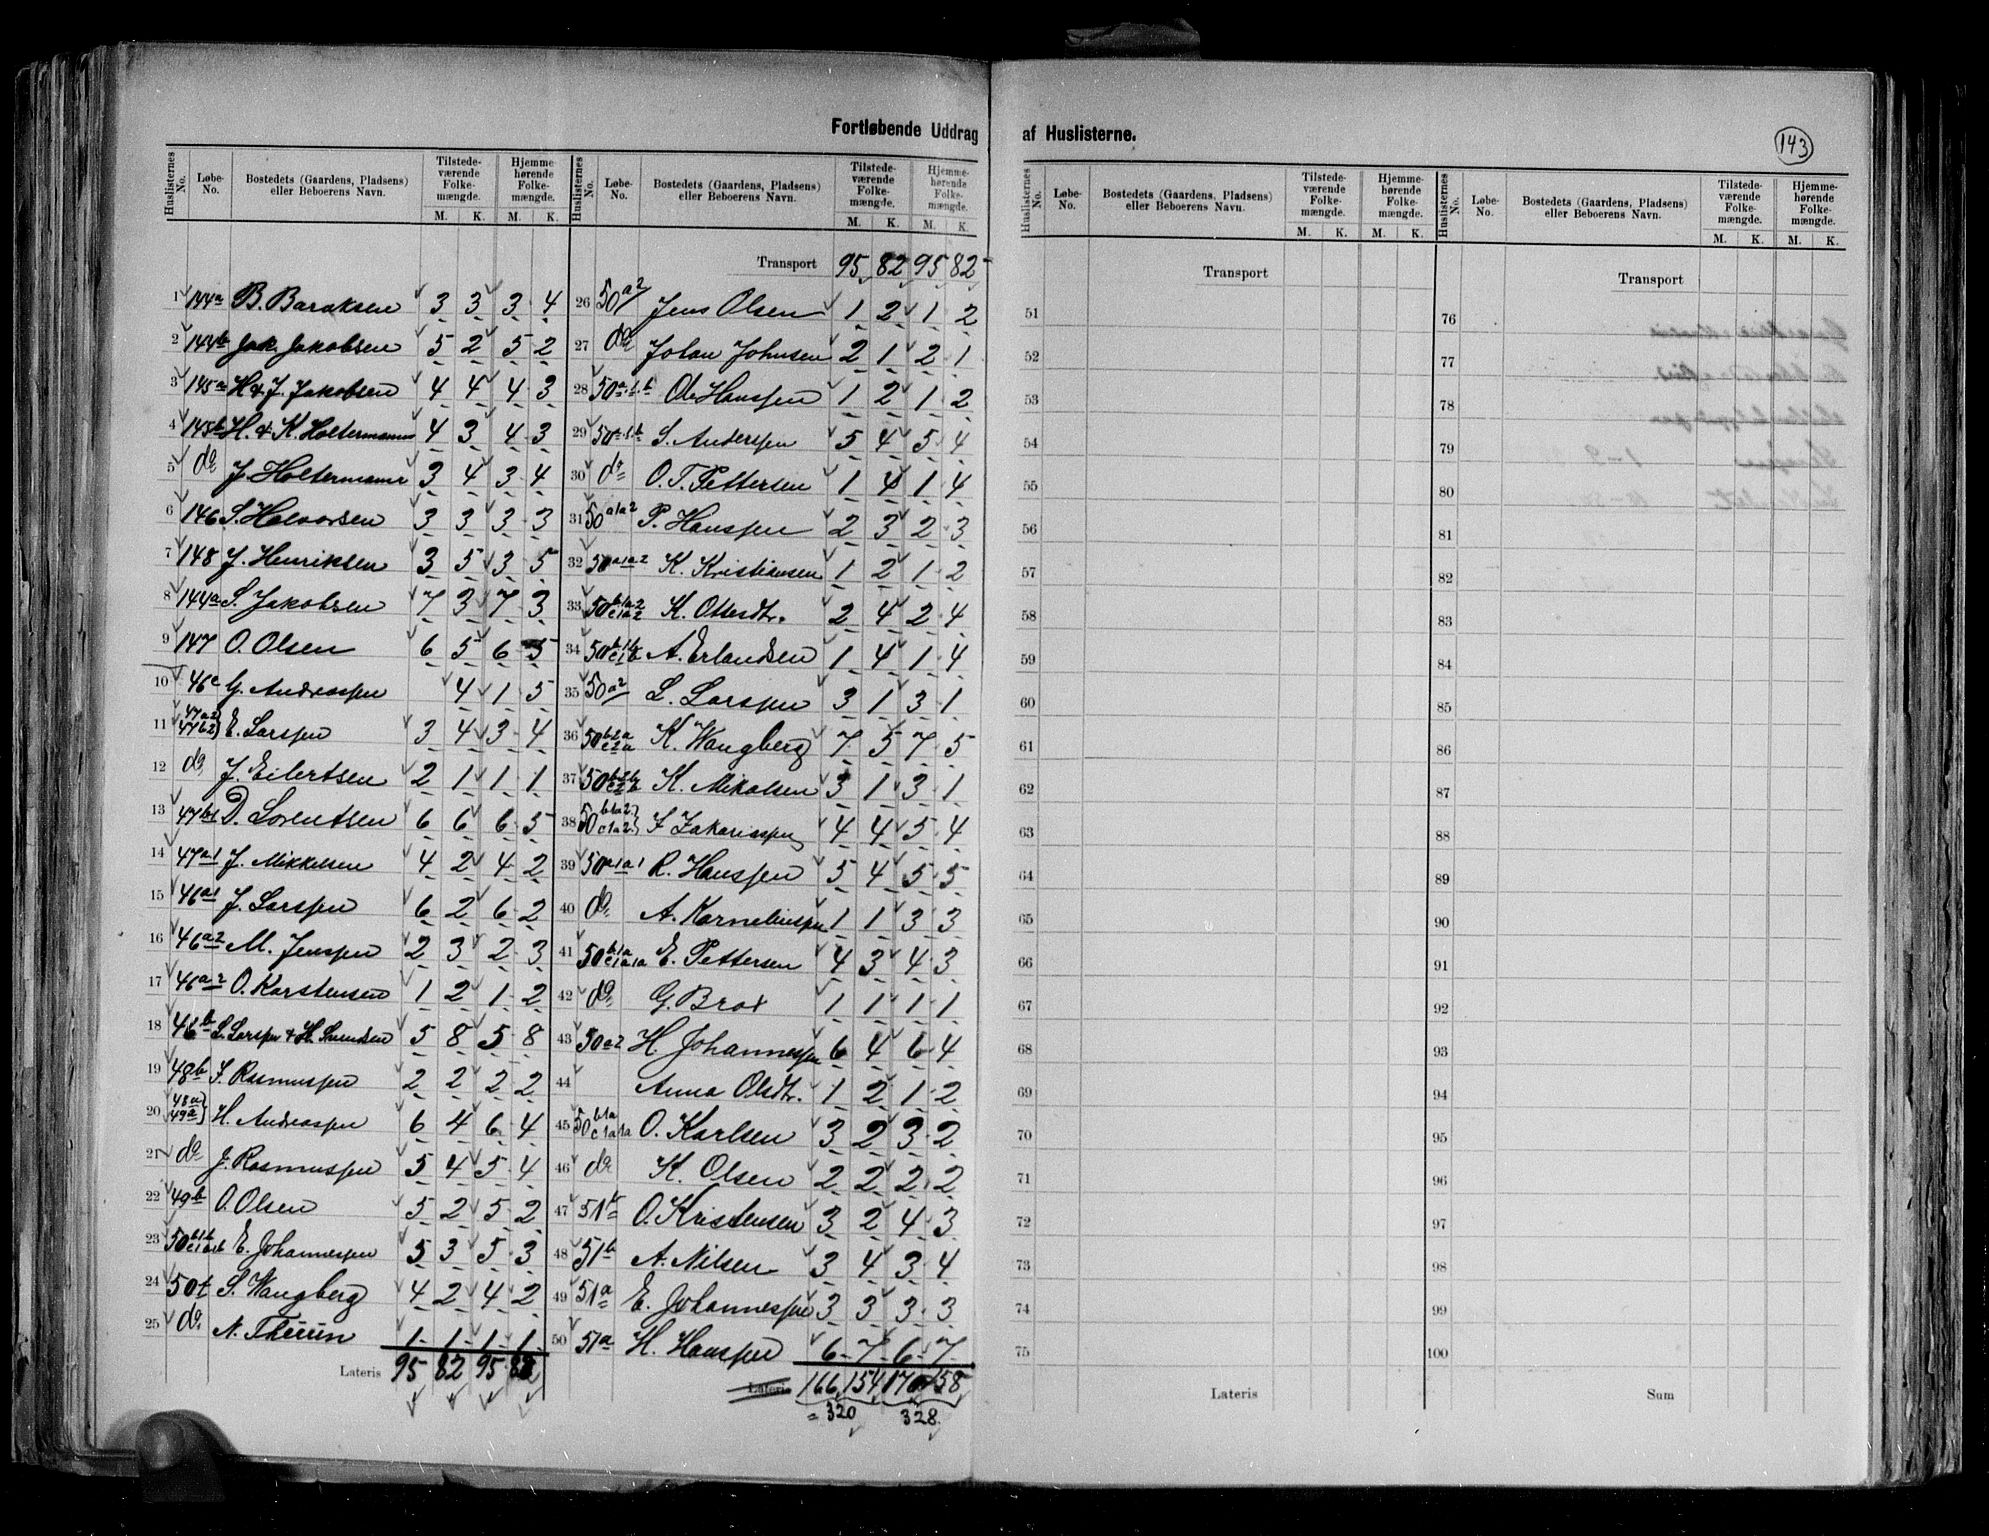 Fortløbende Uddrag af Huslisterne.
143
Huslisternes No. Løbe-No. Bostedets (Gaardens, Pladsens) eller Beboerens Navn. Tilstedeværende Folkemængde. M. K. Hjemmehørende Folkemængde. M. K.
1 144a B. Baraksen 3 3 3 4
2 144b Jak. Jakobsen 5 2 5 2
3 145a H & J. Jakobsen 4 4 4 3
4 145b H. & K. Holtermann 4 3 4 3
5 do J. Holtermann 3 4 3 4
6 146 S. Halvorsen 3 3 3 3
7 148 J. Henriksen 3 5 3 5
8 144a S. Jakobsen 7 3 7 3
9 147 O. Olsen 6 5 6 5
10 46c G. Andreassen 4 1 5
11 47a2 47b2 E. Larssen 3 4 3 4
12 do J. Eilertsen 2 1 1 1
13 47b1 D. Lorentsen 6 6 6 5
14 47a1 J. Mikkelsen 4 2 4 2
15 46a1 J. Larssen 6 2 6 2
16 46a2 M. Jenssen 2 3 2 3
17 46a2 O. Karstensen 1 2 1 2
18 46b L. Larssen & H. Svendsen 5 8 5 8
19 48b S. Rasmussen 2 2 2 2
20 48a 49a H. Andreassen 6 4 6 4
21 do J. Rasmussen 5 4 5 4
22 49b O. Olsen 5 2 5 2
23 50b1b E. Johannessen 5 3 5 3
24 50t S. Wangberg 4 2 4 2
25 do N. 1 1 1 1
Lateris 95 82 95 82
Huslisternes No. Løbe-No. Bostedets (Gaardens, Pladsens) eller Beboerens Navn. Tilstedeværende Folkemængde. M. K. Hjemmehørende Folkemængde. M. K.
Transport 95 82 95 82
26 50a2 Jens Olsen 1 2 1 2
27 do Johan Johnsen 2 1 2 1
28 50a1b Ole Hanssen 1 2 1 2
29 50a1b S. Anderssen 5 4 5 4
30 do O. T. Pettersen 1 4 1 4
31 50a1a2 P. Hanssen 2 3 2 3
32 50a1a2 K. Kristiansen 1 2 1 2
33 50b1a2 c1a2 K. Ottesdtr. 2 4 2 4
34 50b1b c1b A. Erlandsen 1 4 1 4
35 50a2 L. Larssen 3 1 3 1
36 50b2a c2a K. Wangberg 7 5 7 5
37 50b2b c2b K. Mikalsen 3 1 3 1
38 50b1a2 c1a2 F. Zakariassen 4 4 5 4
39 50a1a1 R. Hanssen 5 4 5 5
40 do A. Korneliussen 1 1 3 3
41 50b1a c1a1a E. Pettersen 4 3 4 3
42 do G. Brox 1 1 1 1
43 50a2 H. Johannessen 6 4 6 4
44 Anna Olsdtr. 1 2 1 2
45 50b1a c1a1a O. Karlsen 3 2 3 2
46 do K. Olsen 2 2 2 2
47 51b O. Kristensen 3 2 4 3
48 51b A. Nilsen 3 4 3 4
49 51a E. Johannessen 3 3 3 3
50 51a H. Hanssen 6 7 6 7
Lateris 166 154 170 158
= 320 328
Huslisternes No. Løbe-No. Bostedets (Gaardens, Pladsens) eller Beboerens Navn. Tilstedeværende Folkemængde. M. K. Hjemmehørende Folkemængde. M. K.
Transport
51
52
53
54
55
56
57
58
59
60
61
62
63
64
65
66
67
68
69
70
71
72
73
74
75
Lateris
Huslisternes No. Løbe-No. Bostedets (Gaardens, Pladsens) eller Beboerens Navn. Tilstedeværende Folkemængde. M. K. Hjemmehørende Folkemængde. M. K.
Transport
76
77
78
79
80
81
82
83
84
85
86
87
88
89
90
91
92
93
94
95
96
97
98
99
100
Sum